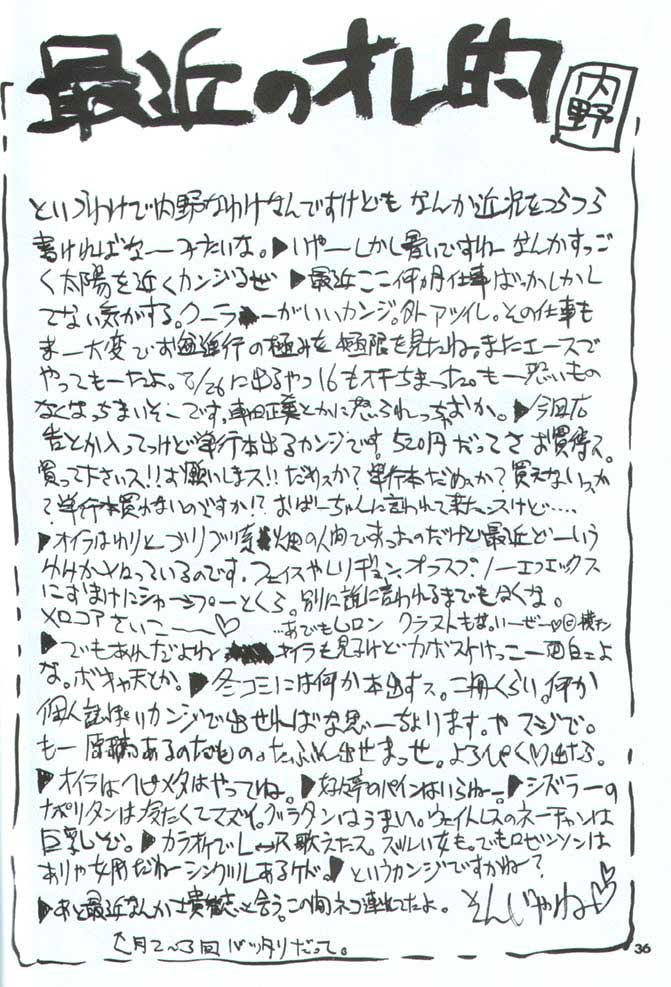 最近のオレ的
内野
というわけで内野なわけなんですけども なんか近況をつらつら
書ければなーみたいな。▶いやーしかし暑いですねーなんかすっご
く太陽を近くカンジるぜ ▶最近ここ何ヵ月仕事ばっかしかし
てない気がする。クーラーがいいカンジ。外アツイし。その仕事も
まー大変です 進行の極みを極限を見たね。またエースで
やってもーたよ。8/26に出るやつ16もオチちまった。もー恐いもの
なくなっちまいそーです。車田正美とかに怒られっちまおか。▶今回広
告とか入ってっけど単行本出るカンジです。520円だってさ お買得ス。
買って下さいス!!お願いしまス!!だめスか?単行本だめスか?買えないっスか
?単行本買わないのですか!?おばーちゃんに言われて来たっスけど……
▶オイラはわりとゴリゴリ系 畑の人間ですったのだけど最近どーいう
わけか なっているのです。フェイスやレリジョン、オフスプ、ノーエフエックス
におまけにシャープーとくら。別に誰に言われるまでもなくな。
メロコアさいこ〜〜〜♡ …あでもムロン クラストも
▶でもあれだよね オイラも見るけどカボスけっこー面白えよ
な。ボキャ天とか。▶冬コミには何か本出すス。二冊くらい。何か
個人誌ぽいカンジで出せればな思ーちょります。や マジで。
もー原稿あるのたもの。たぶん出せまっせ。よろぴく♡出たら。
▶オイラはヘビメタはやってねえ。▶ 酢豚のパインはいらねー。▶シズラーの
ナポリタンは冷たくてマズイ。グラタンはうまい。ウェイトレスのネーチャンは
巨乳じゃ。▶カラオケでL⇔R歌えたス。ズルい女も。でもロビンソンは
ありゃ女用だねーシングルあるケド。▶というカンジですかね〜?
▶あと最近なんか士貴智志と会う。この間ネコ連れてたよ。そんじゃね♡♡
月2〜3回バッタリだって。
36